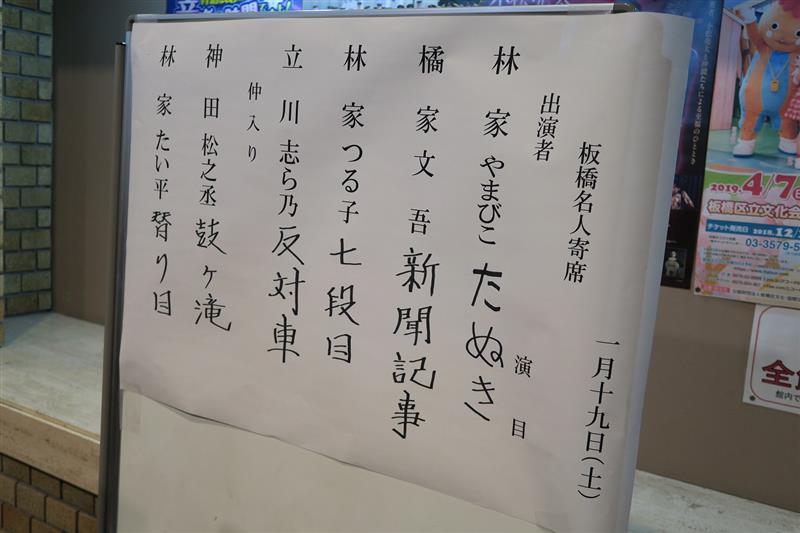 板橋名人寄席
一月十九日(土)
出演者
演目
林家やまびこ たぬき
橘家文吾 新聞記事
林家つる子 七段目
立川志ら乃 反対車
仲入り
神田松之丞 鼓ヶ滝
林家たい平 替り目
2019.4/7
板橋区立文化会
チケット発売日
2018.12/
03-3579-5
全
館内で